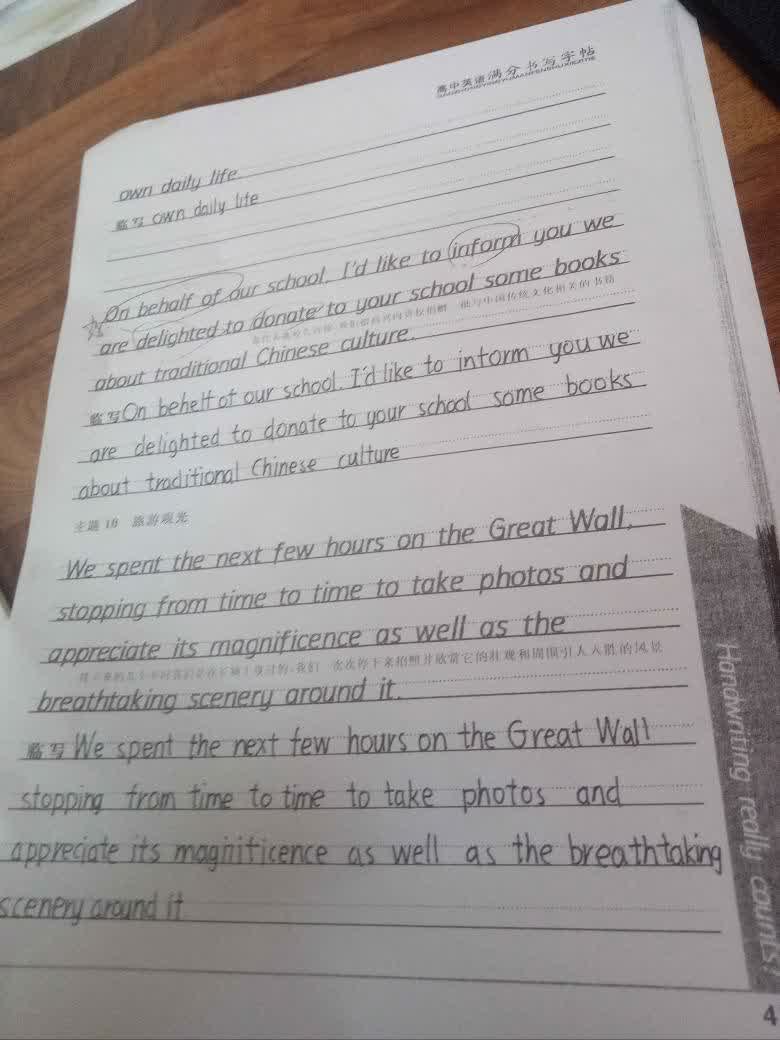 高中英语满分书写字帖
GAOZHONGYINGYUMANFENSHUXIEZITIE
own daily life
临写 own daily life
On behalf of our school, I'd like to inform you we
are delighted to donate to your school some books
about traditional Chinese culture.
临写 On behelf of our school. I'd like to inform you we
are delighted to donate to your school some books
about traditional Chinese culture
主题 10 旅游观光
We spent the next few hours on the Great Wall,
stopping from time to time to take photos and
appreciate its magnificence as well as the
breathtaking scenery around it.
临写 We spent the next few hours on the Great Wall
stopping from time to time to take photos and
appreciate its magnificence as well as the breathtaking
scenery around it
Handwriting really counts!
4